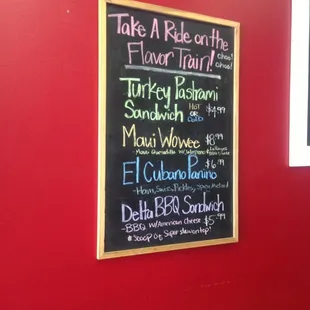 Take A Ride on the
Flavor Train! choo! choo!
Turkey Pastrami
Sandwich HOT OR COLD $4.99
Maui Wowee $8.99
El Cubano Panino $6.79
-Ham, Swiss, Pickles, Spicy Mustard
Delta BBQ Sandwich
-BBQ w/American Cheese $5.99
* Scoop Of Superslaw on top!